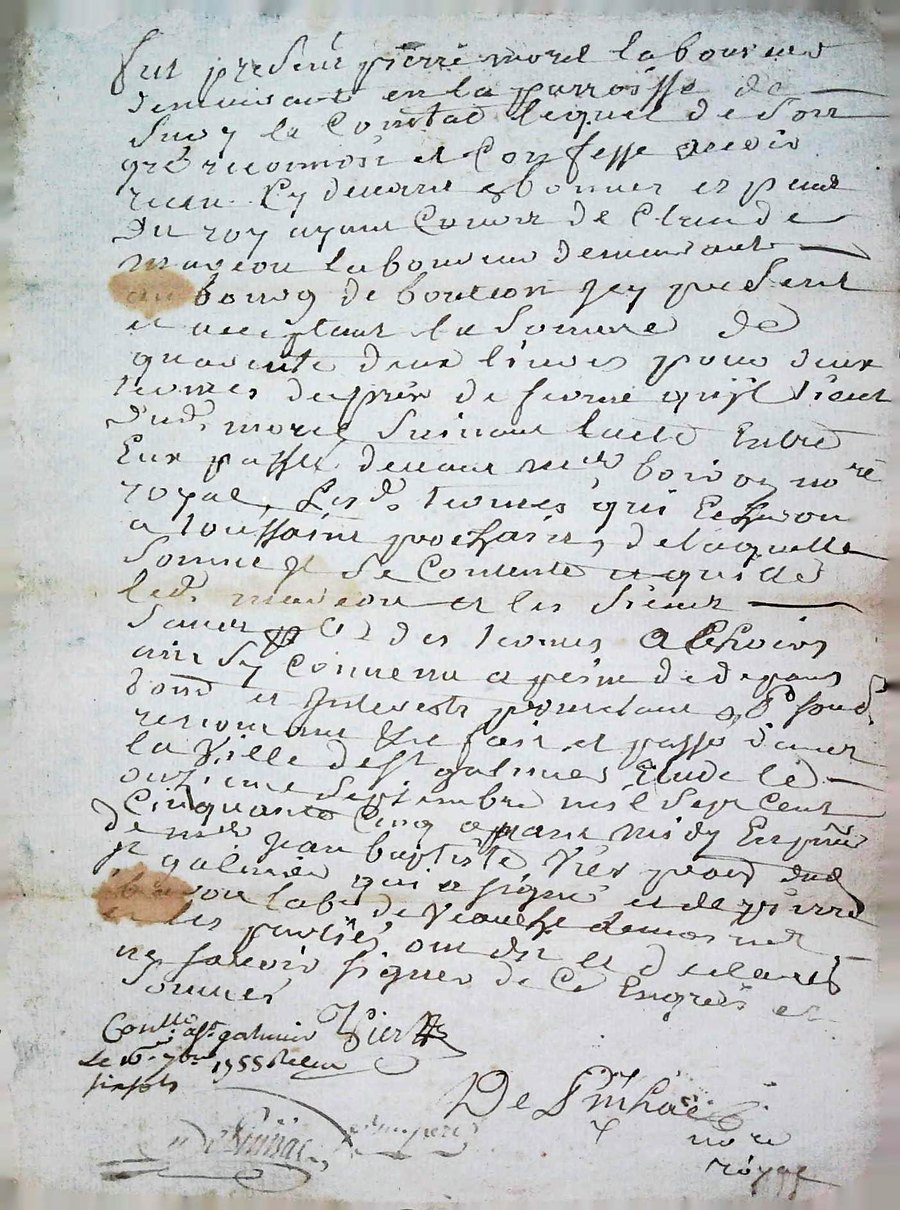 fut presené pierre morel laboureur
demeurant en la parroisse de
Sury le Comtal lequel de Son
gré reconnoit et Confesse avoir
receu Cy devant en bonnes especes
Du roy ayant Cours de Claude
maveou laboureur demeurant
au bourg de bouteon Icy present
et acceptant la Somme de
quarante deux livres pour deux
termes du prix de ferme qu'il tient
Dud. morel Suivant lacte Entre
Eux passé devant mre nore
royal, Lesd. termes qui Echeron
a toussaint prochain, de laquelle
Somme Il Se Contente et quitte
led. maveou et les Siens
Sauf des termes a Echoirs
ainsy Convenu a peine de depans
dom. et Interests pourtant
renonceant fait et passé dans
la Ville de St galmier Etude le
onzieme Septembre mil Sept Cent
Cinquante Cinq apprais midy En pñce
de mre Jean baptiste Vier pratn dud.
St galmier qui a signé et de pierre
labr de veauche demeurant
et les parties ont dit et declarés
ne savoir signer de Ce Enquis et
Sommés
Conttle a St galmier Vier
Le 16 7bre 1755 Receu
six sols
nore
royal